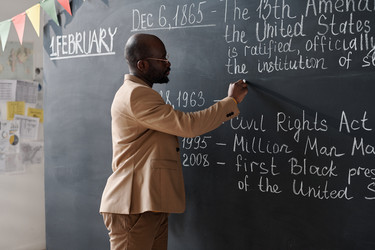 1. FEBRUARY
Dec 6, 1865 - The 13th Amendm
the United States
is ratified, officially
the institution of s
1963
Civil Rights Act
1995 - Million Man Ma
2008 - first Black pres
of the United S